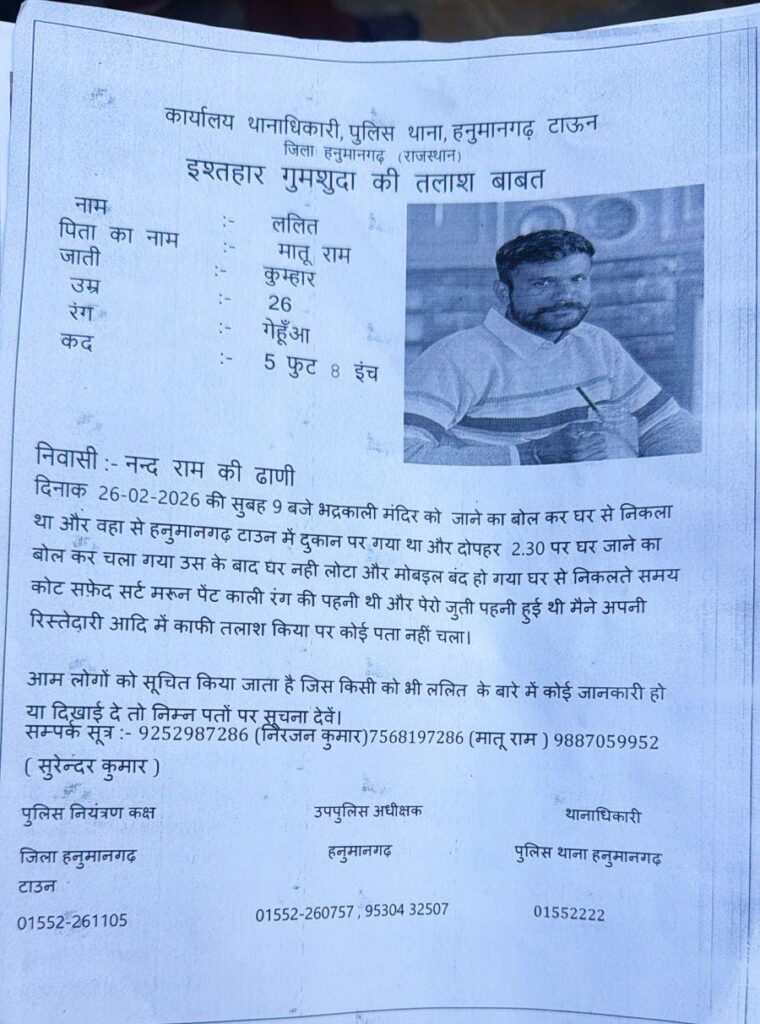 कार्यालय थानाधिकारी, पुलिस थाना, हनुमानगढ़ टाऊन
जिला हनुमानगढ़ (राजस्थान)
इश्तहार गुमशुदा की तलाश बाबत
नाम :- ललित
पिता का नाम :- मातू राम
जाती :- कुम्हार
उम्र :- 26
रंग :- गेहूँआ
कद :- 5 फुट 8 इंच
निवासी :- नन्द राम की ढाणी
दिनाक 26-02-2026 की सुबह 9 बजे भद्रकाली मंदिर को जाने का बोल कर घर से निकला
था और वहा से हनुमानगढ़ टाउन में दुकान पर गया था और दोपहर 2.30 पर घर जाने का
बोल कर चला गया उस के बाद घर नही लोटा और मोबइल बंद हो गया घर से निकलते समय
कोट सफ़ेद सर्ट मरून पेंट काली रंग की पहनी थी और पेरो जुती पहनी हुई थी मैने अपनी
रिस्तेदारी आदि में काफी तलाश किया पर कोई पता नहीं चला।
आम लोगों को सूचित किया जाता है जिस किसी को भी ललित के बारे में कोई जानकारी हो
या दिखाई दे तो निम्न पतों पर सूचना देवें।
सम्पर्क सूत्र :- 9252987286 (निरजन कुमार)7568197286 (मातू राम ) 9887059952
( सुरेन्दर कुमार )
पुलिस नियंत्रण कक्ष उपपुलिस अधीक्षक थानाधिकारी
जिला हनुमानगढ़ हनुमानगढ़ पुलिस थाना हनुमानगढ़
टाउन
01552-261105 01552-260757 , 95304 32507 01552222